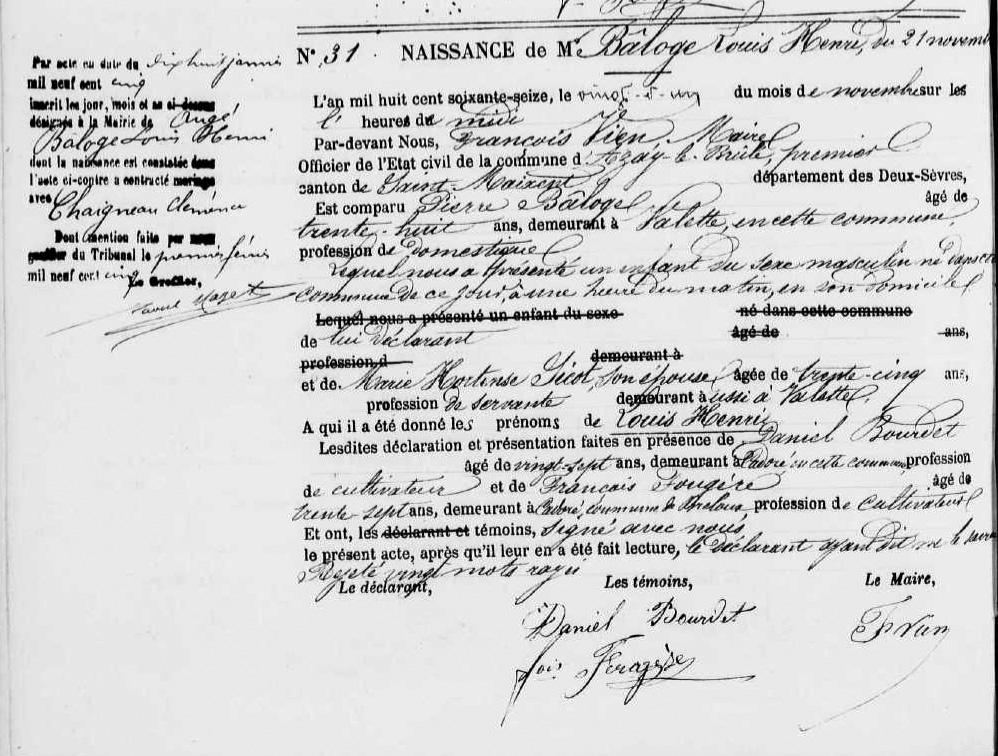 Par acte en date du dix huit janvier
mil neuf cent cinq
inscrit les jour, mois et an ci-dessus
désignés à la Mairie de Augé
Bâloge Louis Henri
dont la naissance est constatée dans
l'acte ci-contre a contracté mariage
avec
Chaigneau Clémence
Dont mention faite par nous
greffier du Tribunal le premier février
mil neuf cent cinq
Le Greffier,
N° 31. NAISSANCE de M. Bâloge Louis Henri, du 21 novembre
L'an mil huit cent soixante-seize, le vingt-et-un du mois de novembre sur les
heures du midi
Par-devant Nous, François Maire
Officier de l'Etat civil de la commune d'Azay-le-Brûlé, premier
canton de Saint-Maixent département des Deux-Sèvres,
Est comparu Pierre Bâloge âgé de
trente-huit ans, demeurant à Valette, en cette commune
profession de domestique
Lequel nous a présenté un enfant du sexe masculin né dans cette
commune de ce jour, à une heure du matin, en son domicile
Lequel nous a présenté un enfant du sexe né dans cette commune
de lui déclarant âgé de ans,
profession d demeurant à
et de Marie Hortense Sicot, son épouse, âgée de trente-cinq ans,
profession de servante demeurant aussi à Valette.
A qui il a été donné les prénoms de Louis Henri
Lesdites déclaration et présentation faites en présence de Daniel Bourdet
âgé de vingt-sept ans, demeurant à Cadoré en cette commune, profession
de cultivateur et de François Fougère âgé de
trente sept ans, demeurant à Cadoré, commune de profession de cultivateur
Et ont, les déclarant et témoins, signé avec nous
le présent acte, après qu'il leur en a été fait lecture, le déclarant ayant dit ne le savoir
Rejeté vingt mots rayés
Le déclarant, Les témoins, Le Maire,
Daniel Bourdet